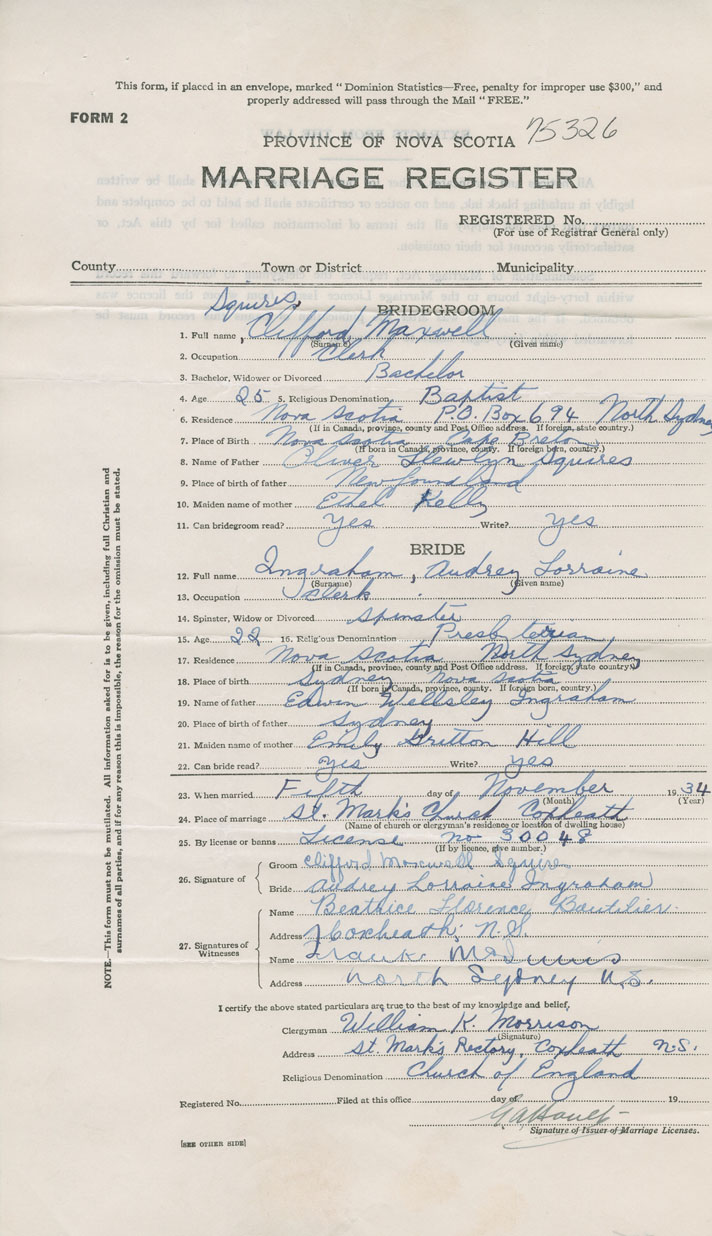 This form, if placed in an envelope, marked "Dominion Statistics—Free, penalty for improper use $300," and
properly addressed will pass through the Mail "FREE."
FORM 2
PROVINCE OF NOVA SCOTIA 75326
MARRIAGE REGISTER
REGISTERED No.
(For use of Registrar General only)
County Town or District Municipality
Squires,
BRIDEGROOM
1. Full name , Clifford Maxwell
(Surname) (Given name)
2. Occupation Clerk
3. Bachelor, Widower or Divorced Bachelor
4. Age 25 5. Religious Denomination Baptist
6. Residence Nova Scotia P.O. Box 694 North Sydney
(If in Canada, province, county and Post Office address. If foreign, state country.)
7. Place of Birth Nova Scotia Cape Breton
(If born in Canada, province, county. If foreign born, country.)
8. Name of Father Oliver Llewlyn Squires
9. Place of birth of father Newfoundland
10. Maiden name of mother Ethel Kelly
11. Can bridegroom read? Yes Write? yes
BRIDE
12. Full name Ingraham, Audrey Lorraine
(Surname) (Given name)
13. Occupation Clerk
14. Spinster, Widow or Divorced Spinster
15. Age 22 16. Religious Denomination Presbyterian
17. Residence Nova Scotia North Sydney
(If in Canada, province, county and Post Office address. If foreign, state country.)
18. Place of birth Sydney Nova Scotia
(If born in Canada, province, county. If foreign born, country.)
19. Name of father Edwin Wellsley Ingraham
20. Place of birth of father Sydney
21. Maiden name of mother Emily Gritton Hill
22. Can bride read? yes Write? yes
23. When married Fifth day of November 1934
(Month) (Year)
24. Place of marriage St. Mark's Church Coxheath
(Name of church or clergyman's residence or location of dwelling house)
25. By license or banns License no. 30048
(If by licence, give number.)
26. Signature of Groom Clifford Maxwell Squires
Bride Audrey Lorraine Ingraham
27. Signatures of Witnesses Name Beatrice Florence Boutilier.
Address Coxheath, N.S.
Name Frank
Address North Sydney N.S.
I certify the above stated particulars are true to the best of my knowledge and belief,
Clergyman William K. Morrison
(Signature)
Address St. Mark's Rectory, Coxheath N.S.
Religious Denomination Church of England
Registered No. Filed at this office day of 19
Signature of Issuer of Marriage Licenses.
[SEE OTHER SIDE]
NOTE.—This form must not be mutilated. All information asked for is to be given, including full Christian and
surnames of all parties, and if for any reason this is impossible, the reason for the omission must be stated.